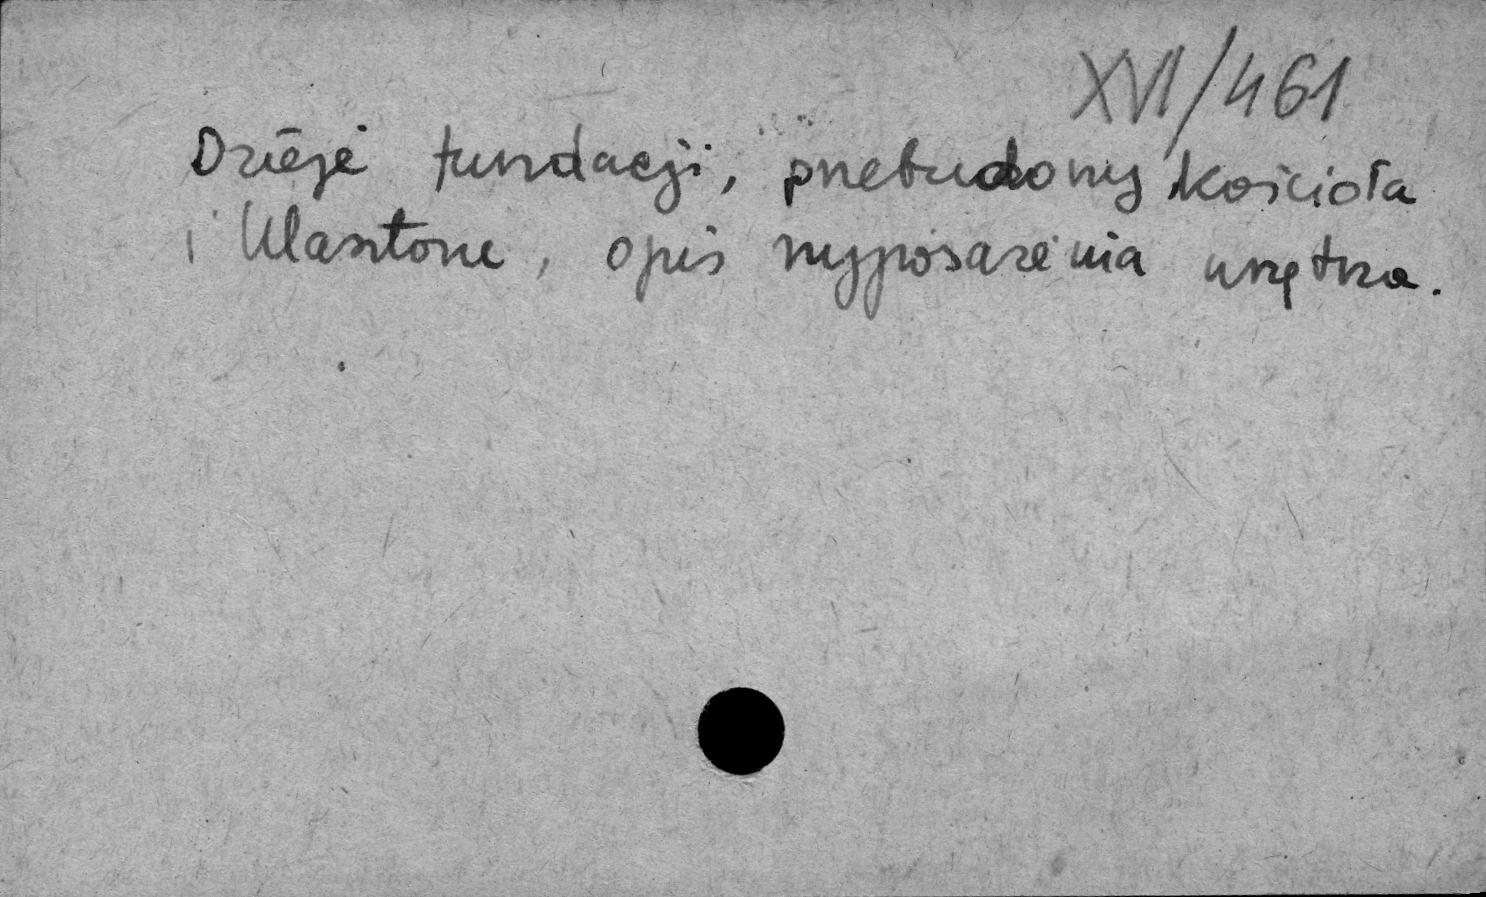 XVI/461
Dzieje fundacji, przebudowy kościoła
i klasztoru, opis wyposażenia wnętrza.